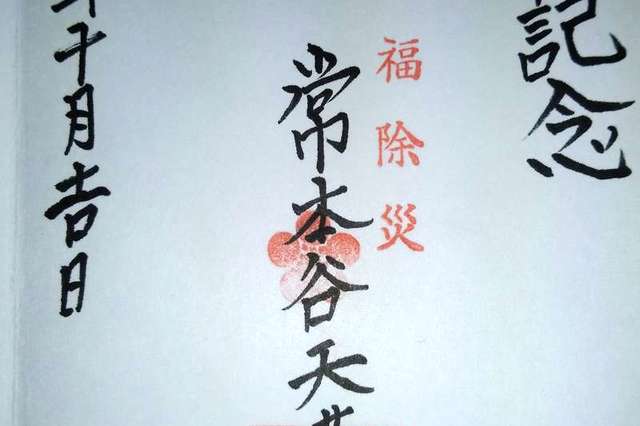 記念
福除災
常本谷天
十月吉日